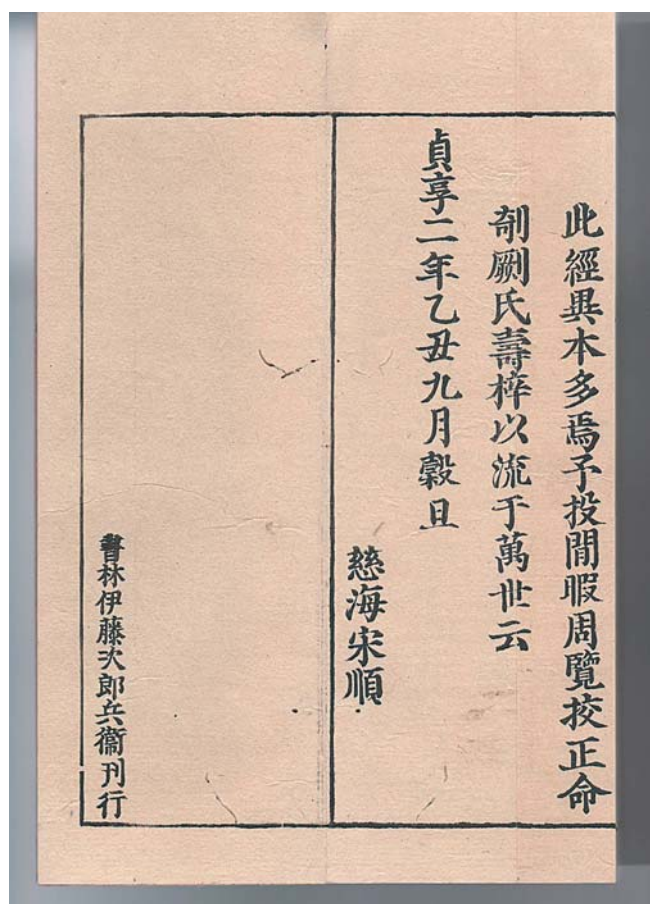 此經異本多焉予投間暇周覽挍正命
剞劂氏壽梓以流于萬世云
貞享二年乙丑九月穀旦
慈海宋順
書林伊藤次郎兵衞刊行